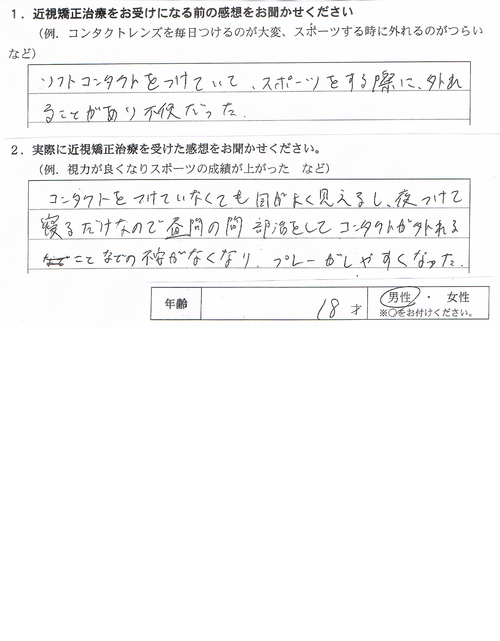 1．近視矯正治療をお受けになる前の感想をお聞かせください
（例．コンタクトレンズを毎日つけるのが大変、スポーツする時に外れるのがつらい
など）
ソフトコンタクトをつけていて、スポーツをする際に、外れ
ることがあり不便だった.
2．実際に近視矯正治療を受けた感想をお聞かせください。
（例．視力が良くなりスポーツの成績が上がった　など）
コンタクトをつけていなくても目がよく見えるし、夜つけて
寝るだけなので昼間の間 部活をして コンタクトが外れる
ことなどの不安がなくなり、プレーがしやすくなった.
年齢 18才 男性 ・ 女性
※○をお付けください。